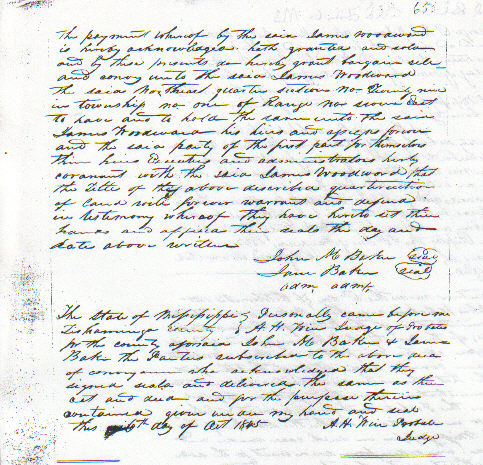 65
the payment whereof by the said James Woodward
is hereby acknowledged hath granted and sold
and by these presents do hereby grant bargain sell
and convey unto the said James Woodward
the said Northeast quarter Section No Twenty
in township No one of Range No seven East
to have and to hold the same unto the said
James Woodward his heirs and assigns forever
and the said party of the first part for themselves
their heirs Executors and administrators hereby
covenant with the said James Woodward that
the title of the above described quarter section
of Land will forever warrant and defend
in testimony whereof they have hereto set their
hands and affixed their seals the day and
date above written
John M Baker (seal)
Jane Baker (seal)
adm, admx
The State of Mississippi } Personally came before me
Tishamingo County } A. H. Judge of Probate
for the county aforesaid John M Baker & Jane
Baker the Parties subscribed to the above deed
of conveyance who acknowledged that they
signed seald and delivered the same as their
act and deed and for the purpose therein
contained given under my hand and seal
this 6th day of Oct 1845 A. H. Probate
Judge